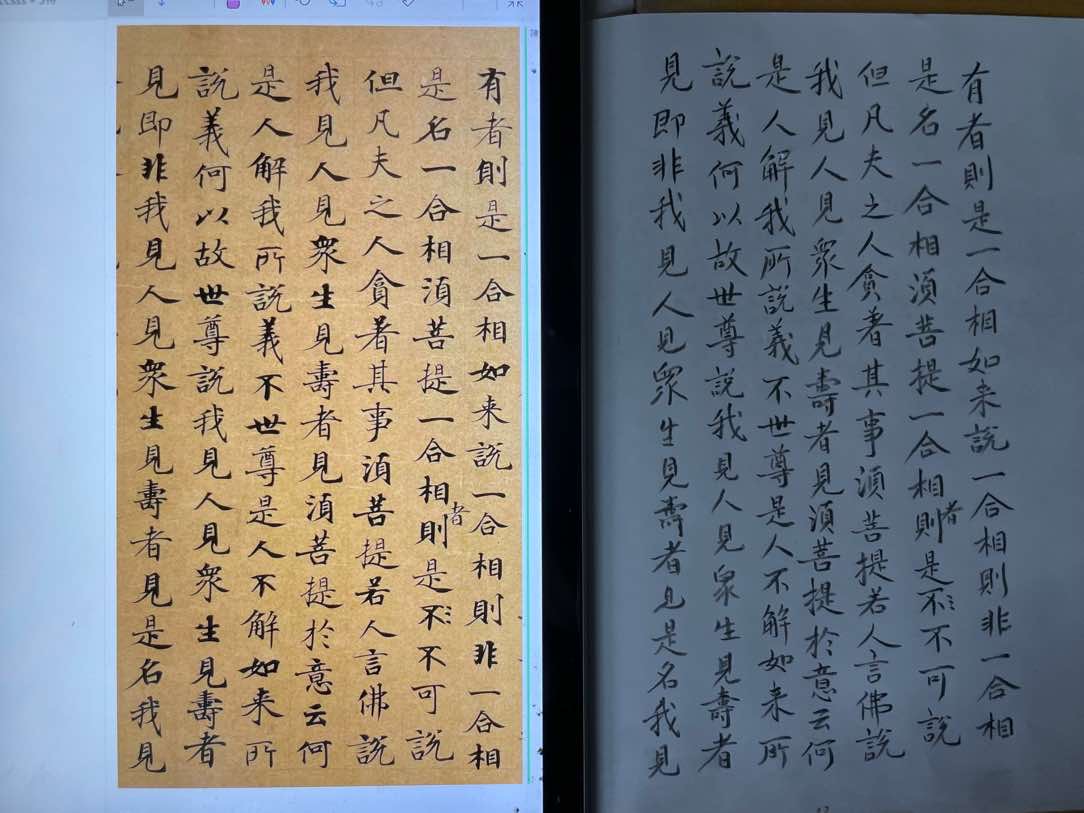 有者則是一合相如来説一合相則非一合相
是名一合相湏菩提一合相者則是不〻不可説
但凡夫之人貪著其事湏菩提若人言佛説
我見人見衆生見壽者見湏菩提於意云何
是人解我所説義不世尊是人不解如来所
説義何以故世尊説我見人見衆生見壽者
見即非我見人見衆生見壽者見是名我見
有者則是一合相如来説一合相則非一合相
是名一合相湏菩提一合相者則是不〻不可説
但凡夫之人貪著其事湏菩提若人言佛説
我見人見衆生見壽者見湏菩提於意云何
是人解我所説義不世尊是人不解如来所
説義何以故世尊説我見人見衆生見壽者
見即非我見人見衆生見壽者見是名我見